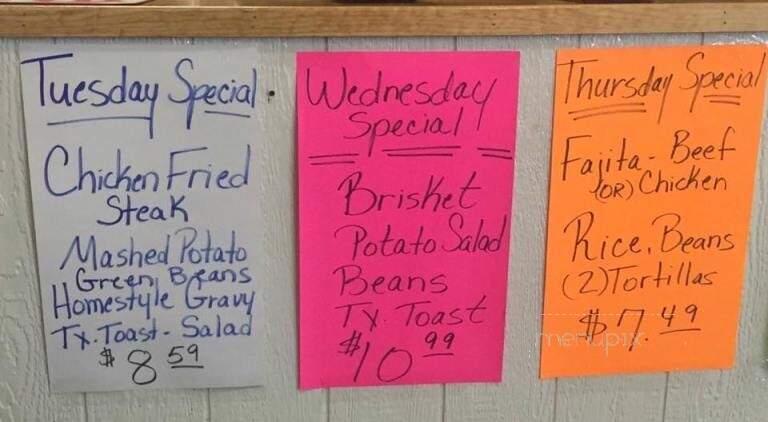 Tuesday Special
Chicken Fried
Steak
Mashed Potato
Green Beans
Homestyle Gravy
Tx. Toast - Salad
$8 59
Wednesday
Special
Brisket
Potato Salad
Beans
Tx. Toast
$10 99
Thursday Special
Fajita - Beef
(OR) Chicken
Rice, Beans
(2) Tortillas
$7.49
menupix